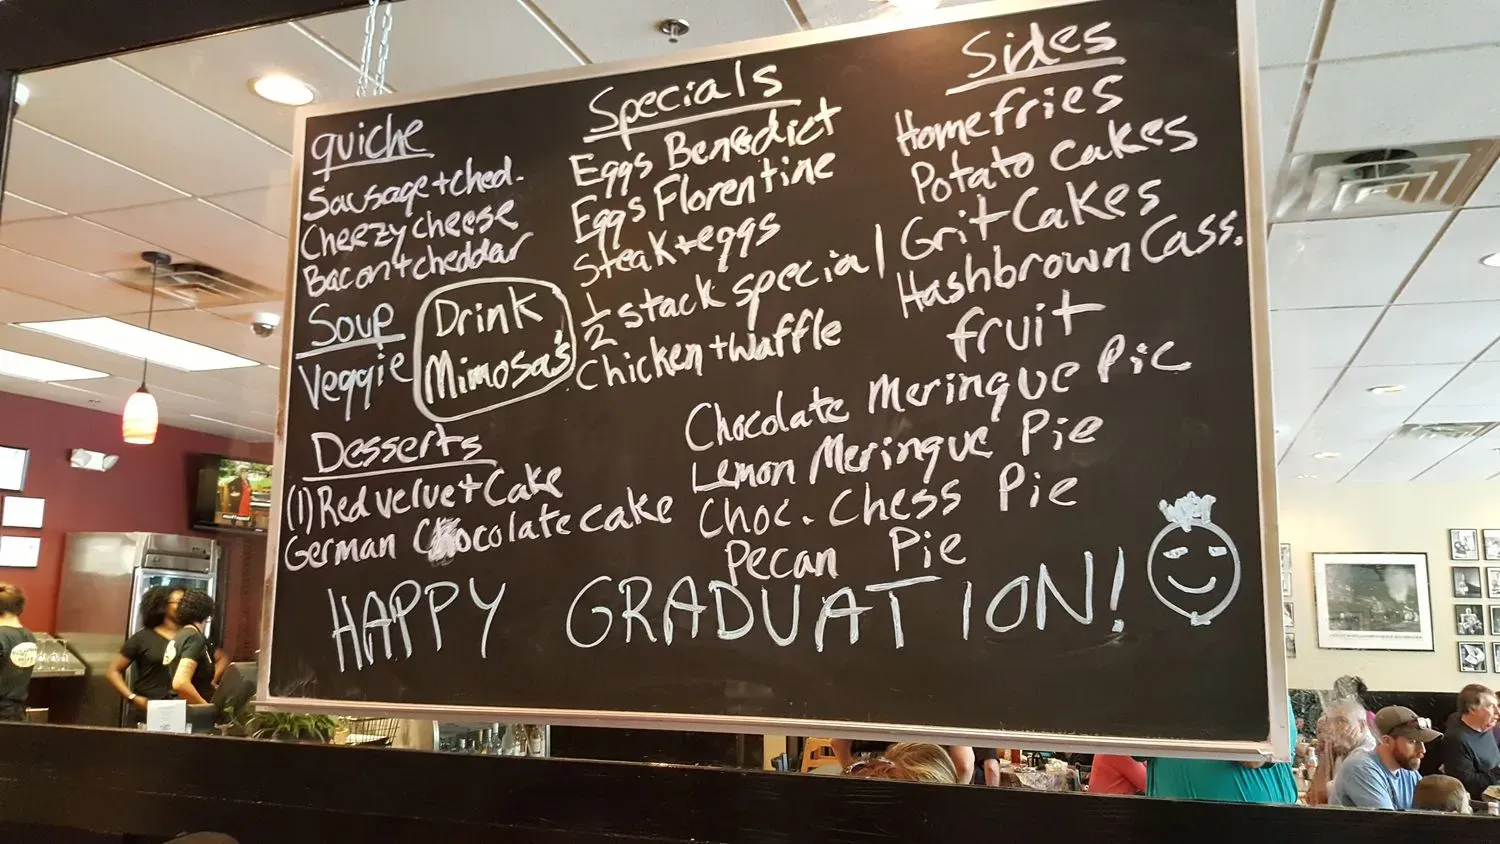 quiche
Sausage + ched.
Cheezy cheese
Bacon + cheddar
Soup
Veggie
Drink
Mimosa's
Specials
Eggs Benedict
Eggs Florentine
Steak + eggs
1/2 stack special
Chicken + Waffle
Sides
Homefries
Potato cakes
Grit Cakes
Hashbrown Cass.
fruit
Desserts
(1) Red velvet Cake
German Chocolate cake
Chocolate Meringue Pie
Lemon Meringue Pie
Choc. Chess Pie
Pecan Pie
HAPPY GRADUATION!